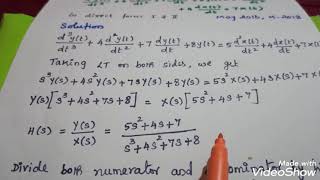 for direct form I & II May 2015, N-2018
Solution
d³y(t)/dt³ + 4 d²y(t)/dt² + 7 dy(t)/dt + 8y(t) = 5 d²x(t)/dt² + 4 dx(t)/dt + 7x(t)
Taking LT on both sides, we get
s³Y(s) + 4s²Y(s) + 7sY(s) + 8Y(s) = 5s²X(s) + 4sX(s) + 7X
Y(s)[s³ + 4s² + 7s + 8] = X(s)[5s² + 4s + 7]
H(s) = Y(s)/X(s) = 5s² + 4s + 7 / s³ + 4s² + 7s + 8
Divide both numerator and
Made with
VideoShow